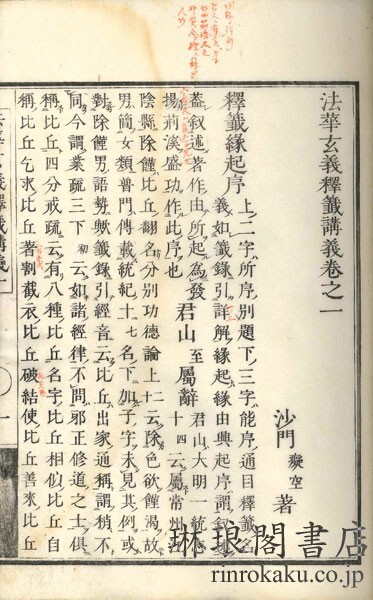 法華玄義釋籤講義卷之一
沙門 癡空 著
釋籤緣起序 上二字所序別題下三字能序通目釋籤名
義如籤錄引詳解緣起緣由興起序謂叙述
蓋叙述著作由所起為發 君山至屬辭 君山大明一統志
揚荊溪盛功作此序也 十四云屬常州江
陰縣除饉比丘翻名分別功德論上十二云除色欲饉渴故
男簡女類普門傳載統紀十七名下加子字未見其例或
對除饉男語勢歟籤錄引經音云比丘出家通稱謂稍不
同今謂業疏三下初云如諸經律不問邪正修道之士俱
稱比丘四分戒疏云有八種比丘名字比丘相似比丘自
稱比丘乞求比丘著割截衣比丘破結使比丘善來比丘
琳琅閣書店
rinrokaku.co.jp